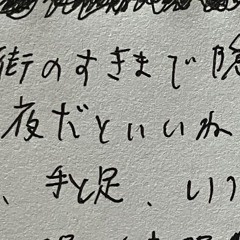 街のすきまで隠
夜だといいね
、手と足、いつ